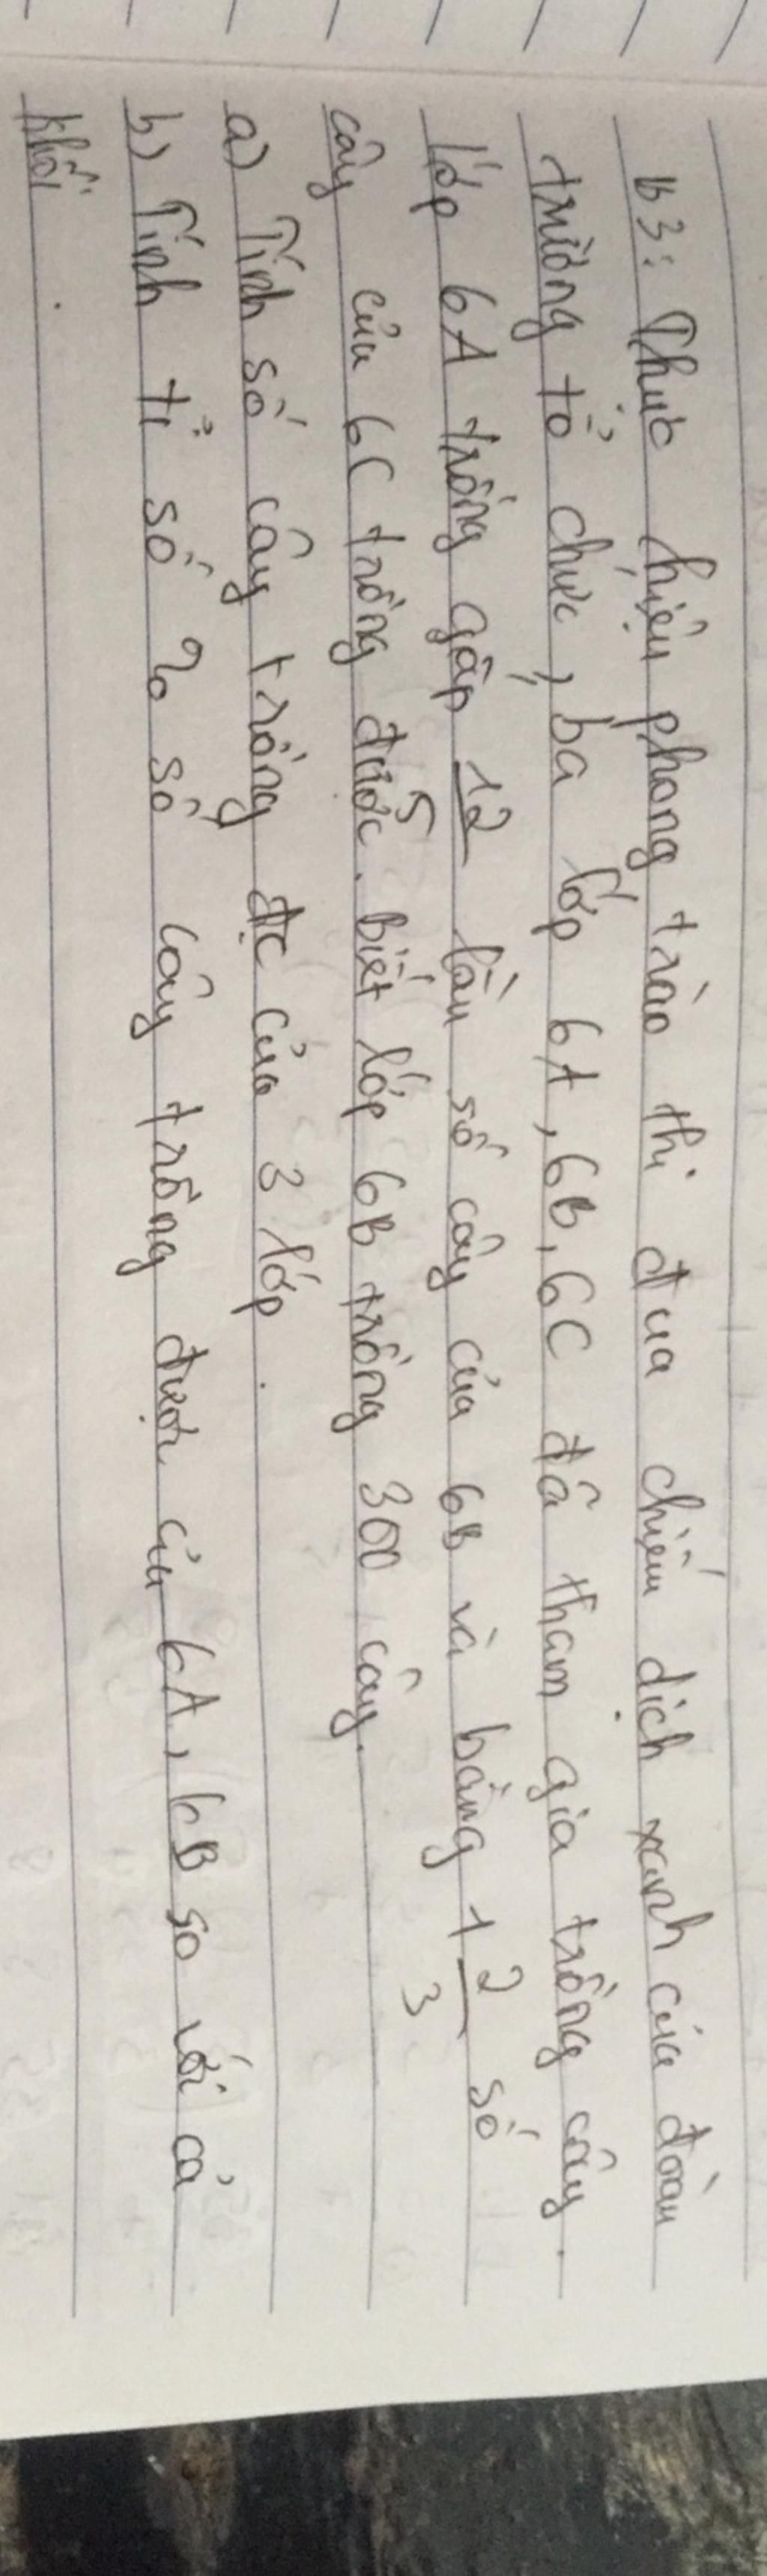 B3: Thực hiện phong trào thi đua chiến dịch xanh của đoàn
trường tổ chức, ba lớp 6A, 6B, 6C đã tham gia trồng cây.
lớp 6A trồng gấp 12/5 lần số cây của 6B và bằng 1 2/3 số
cây của 6C trồng được. biết lớp 6B trồng 300 cây.
a) Tính số cây trồng đc của 3 lớp.
b) Tính tỉ số % số cây trồng được của 6A, 6B so với cả
khối.